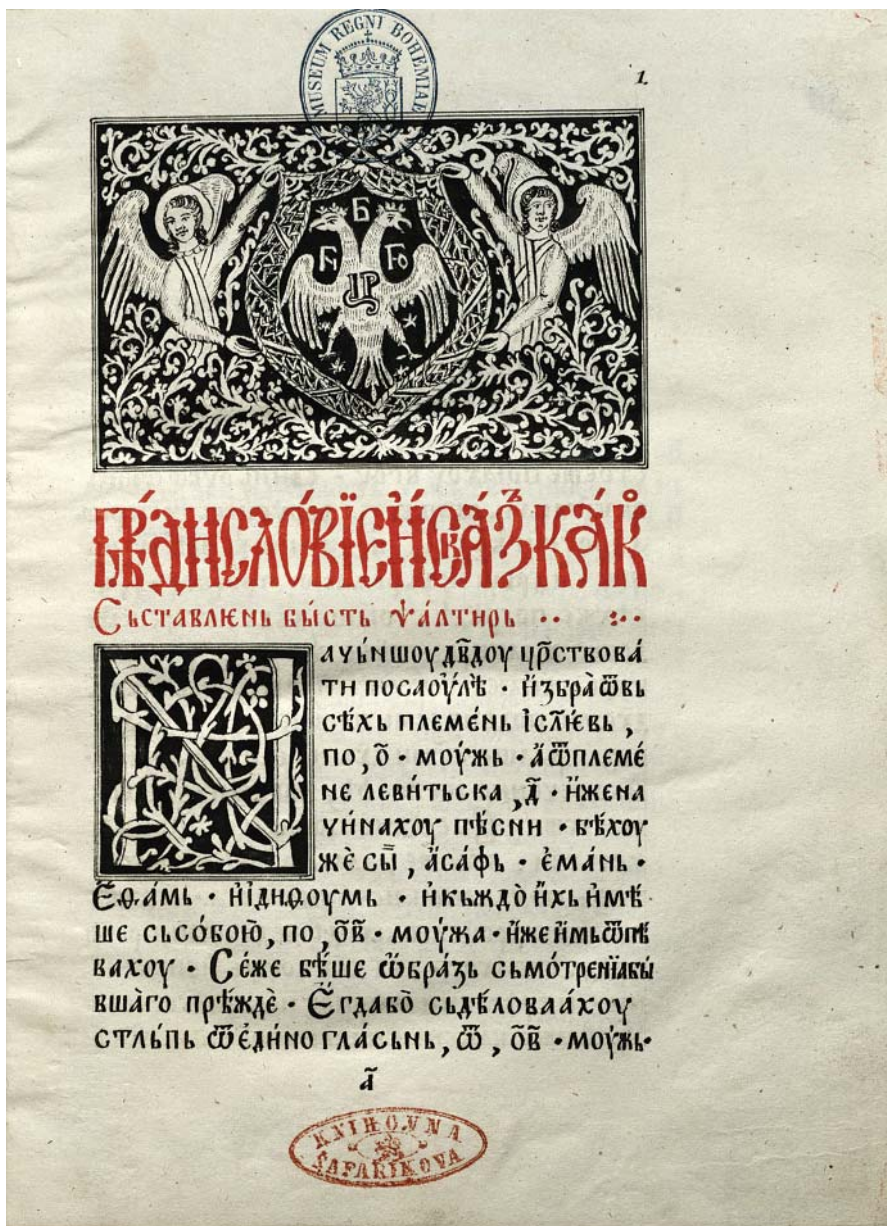 MUSEUM REGNI BOHEMIAE
1.
Б
Гн Го
ЦР
Съставлѥнь бы́сть ѱа́лтирь ·· :··
аꙋьншоу дв҃доу цр҃ствова́
ти посаоу́лѣ · и҆збра̀ ѿвь
сѣ́хь племе́нь і҆сл҃ѥвь ,
по , о҃ · моу́жь · а҆ѿплеме́
не леви́тьска , д҃ · и҆жена
ꙋи́нахоу пѣ́сни · бѣ́хоу
жѐ сы҃ , а҆са́фь · є҆ма́нь ·
Є҆ѳа́мь · и҆і҆диѳоумь · и҆къждо̀ и҆́хь и҆мѣ́
ше сьсо́бою̀ , по , о҃в҃ · моу́жа · и҆́же и҆́мьѿпѣ
вахоу · Се́же бѣ́ше ѡ҆́бра́зь сьмо́тренїабы́
вша́го прѣ́ждѐ · Є҆гдабо̀ сьдѣ́ловаа́хоу
стль́пь ѿє҆ди́но гла́сьнь , ѿ , о҃в҃ · моу́жь ·
а҃
KNIHOVNA
ŠAFAŘÍKOVA